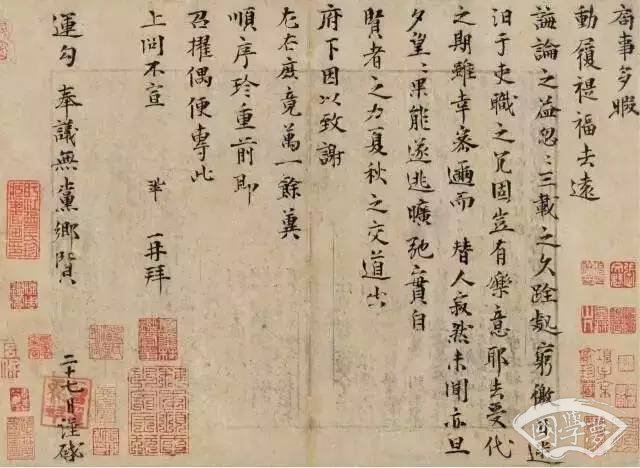 局事多暇
動履禔福去遠
誨論之益忽〻三載之久跧處窮徼日迷
汩于吏職之冗固豈有樂意耶去受代
之期雖幸密邇而替人寂然未聞亦旦
夕望〻果能遂逃曠弛實自
賢者之力夏秋之交道出
府下因以致謝
左右庶竟萬一餘冀
順序珍重前即
召擢偶便專此
上問不宣 鞏 再拜
運勾奉議無黨鄉賢 二十七日謹啟
國學夢